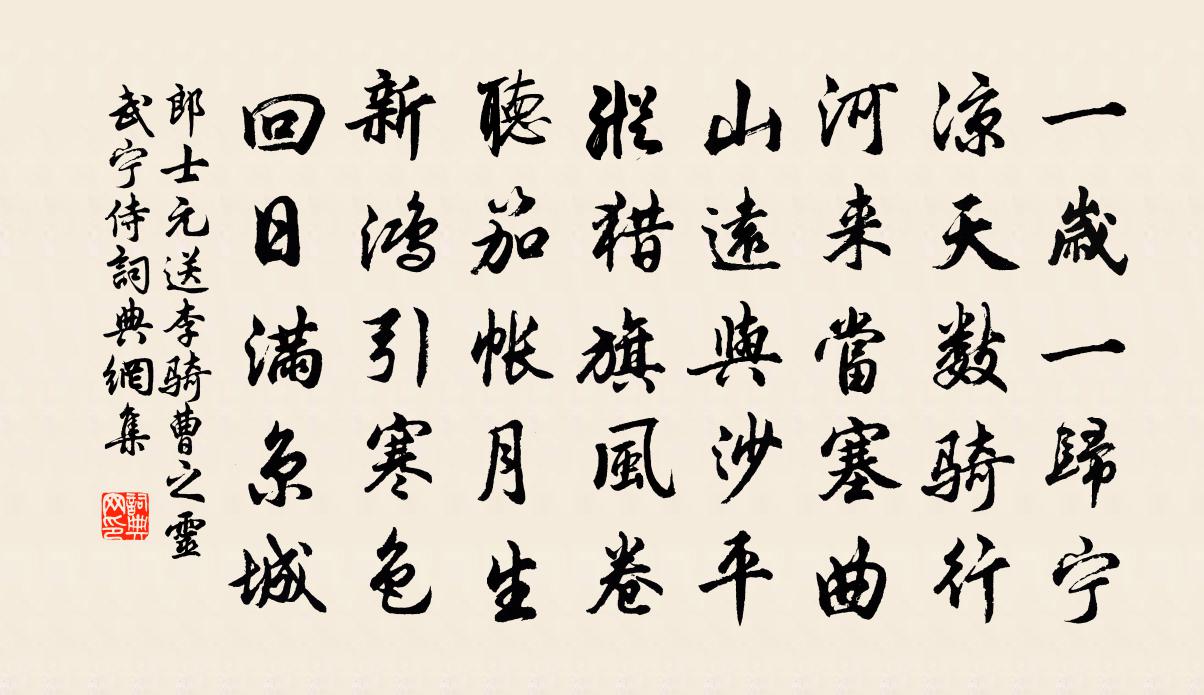 一歲一歸宁
凉天數騎行
河来當塞曲
山遠與沙平
縱猎旗風卷
聽笳帐月生
新鸿引寒色
回日满京城
郎士元送李骑曹之靈
武宁侍詞典網集
詞典
网印